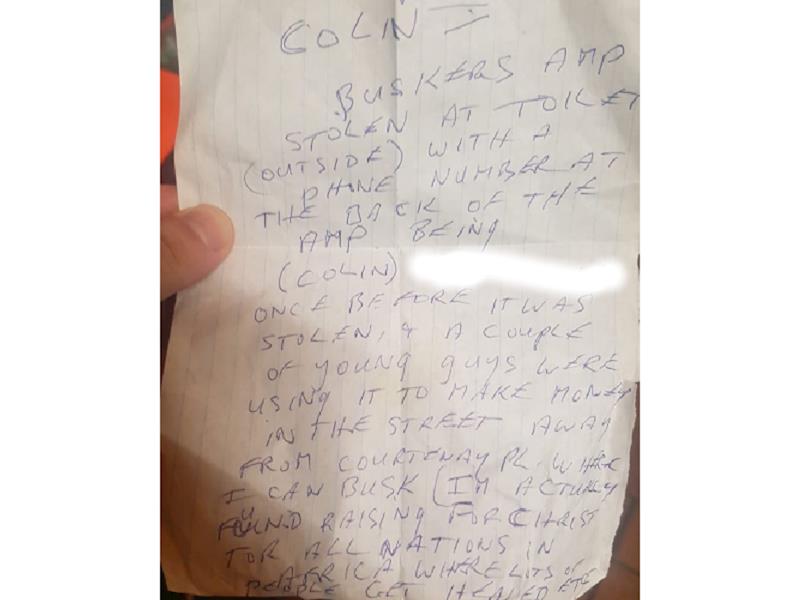 COLIN
BUSKERS AMP
STOLEN AT TOILET
(OUTSIDE) WITH A
PHONE NUMBER AT
THE BACK OF THE
AMP BEING
(COLIN)
ONCE BEFORE IT WAS
STOLEN, & A COUPLE
OF YOUNG GUYS WERE
USING IT TO MAKE MONEY
IN THE STREET AWAY
FROM COURTENAY PL. WHERE
I CAN BUSK (I'M ACTUALLY
FUND RAISING FOR CHRIST
FOR ALL NATIONS IN
AFRICA WHERE LOTS OF
PEOPLE GET HEALED ETC